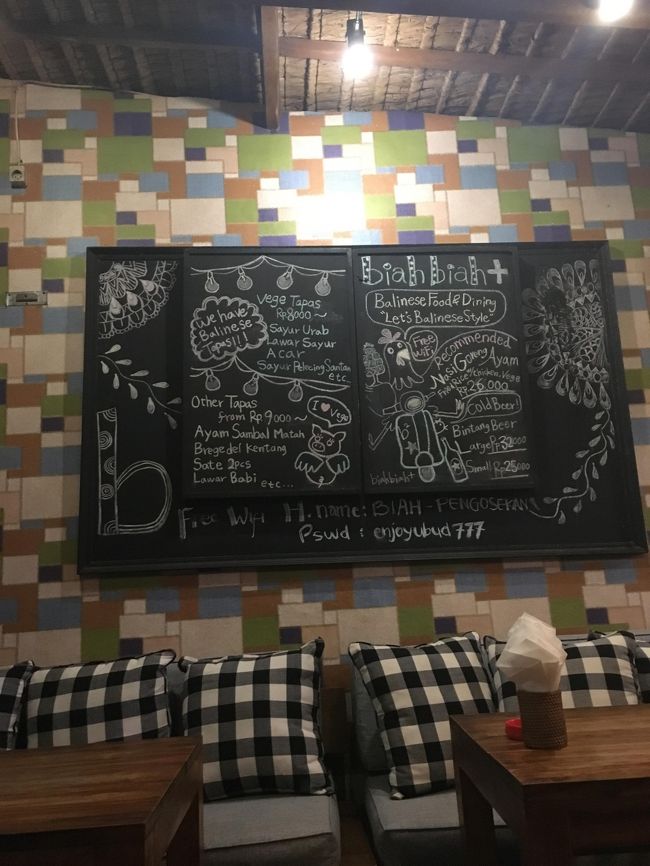 We have
Balinese
Tapas!!!
Vege Tapas
Rp8000~
Sayur Urab
Lawar Sayur
Acar
Sayur Pelecing Santan
etc.
Other Tapas
from Rp.9000~
Ayam Sambal Matah
Bregedel Kentang
Sate 2pcs
Lawar Babi
etc...
I ♥ Vege
biah biah+
Balinese Food & Dining
"Let's Balinese Style"
Free
Wifi
Recommended
Nasi Goreng Ayam
Fried Rice w/ Chicken, Vege
Rp 26.000
Cold Beer!
Bintang Beer
Large Rp 39000
Small Rp 25000
biahbiah+
b
Free Wifi H.name: BIAH-PENGOSEKAN
Pswd : enjoyubud777